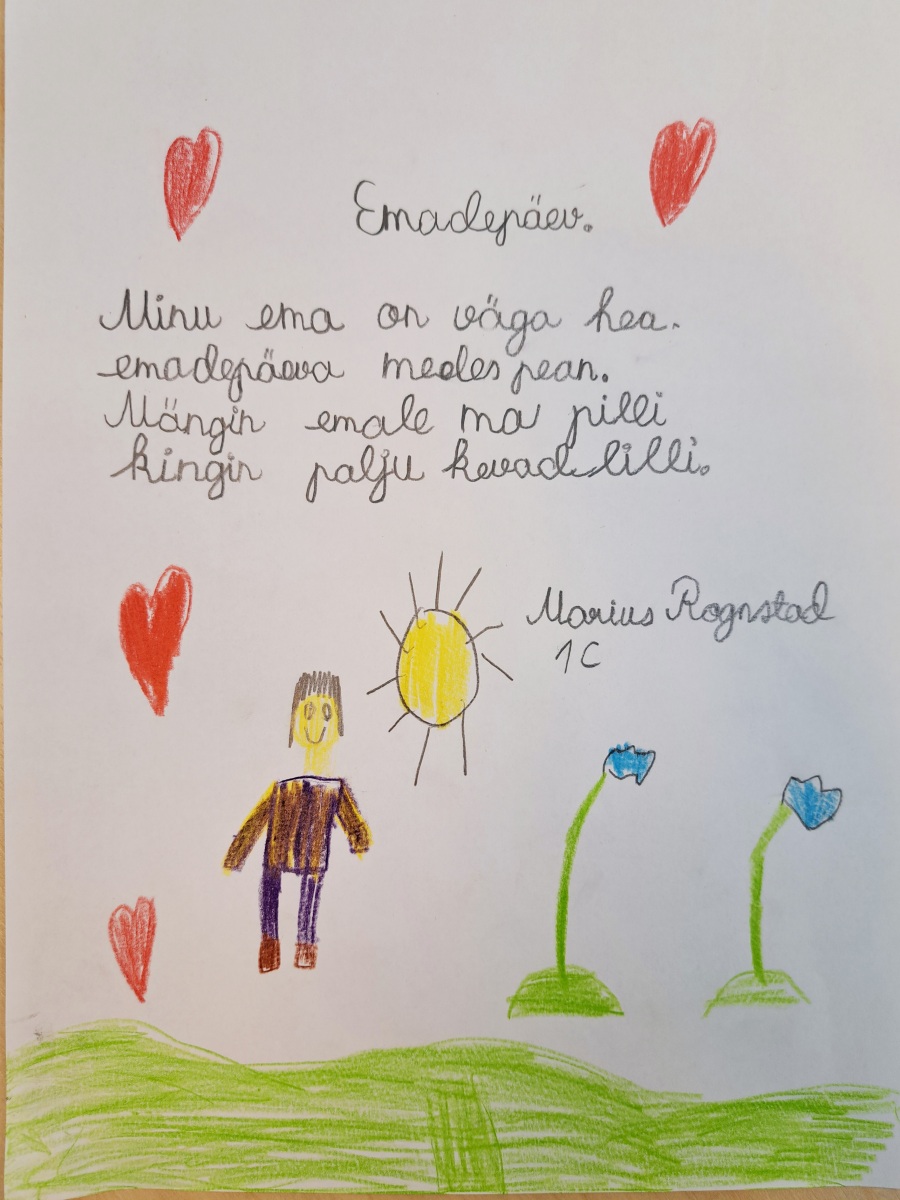 Emadepäev.
Minu ema on väga hea.
emadepäeva meeles pean.
Mängin emale ma pilli
kingin palju kevad lilli.
Marius Rognstad
1C